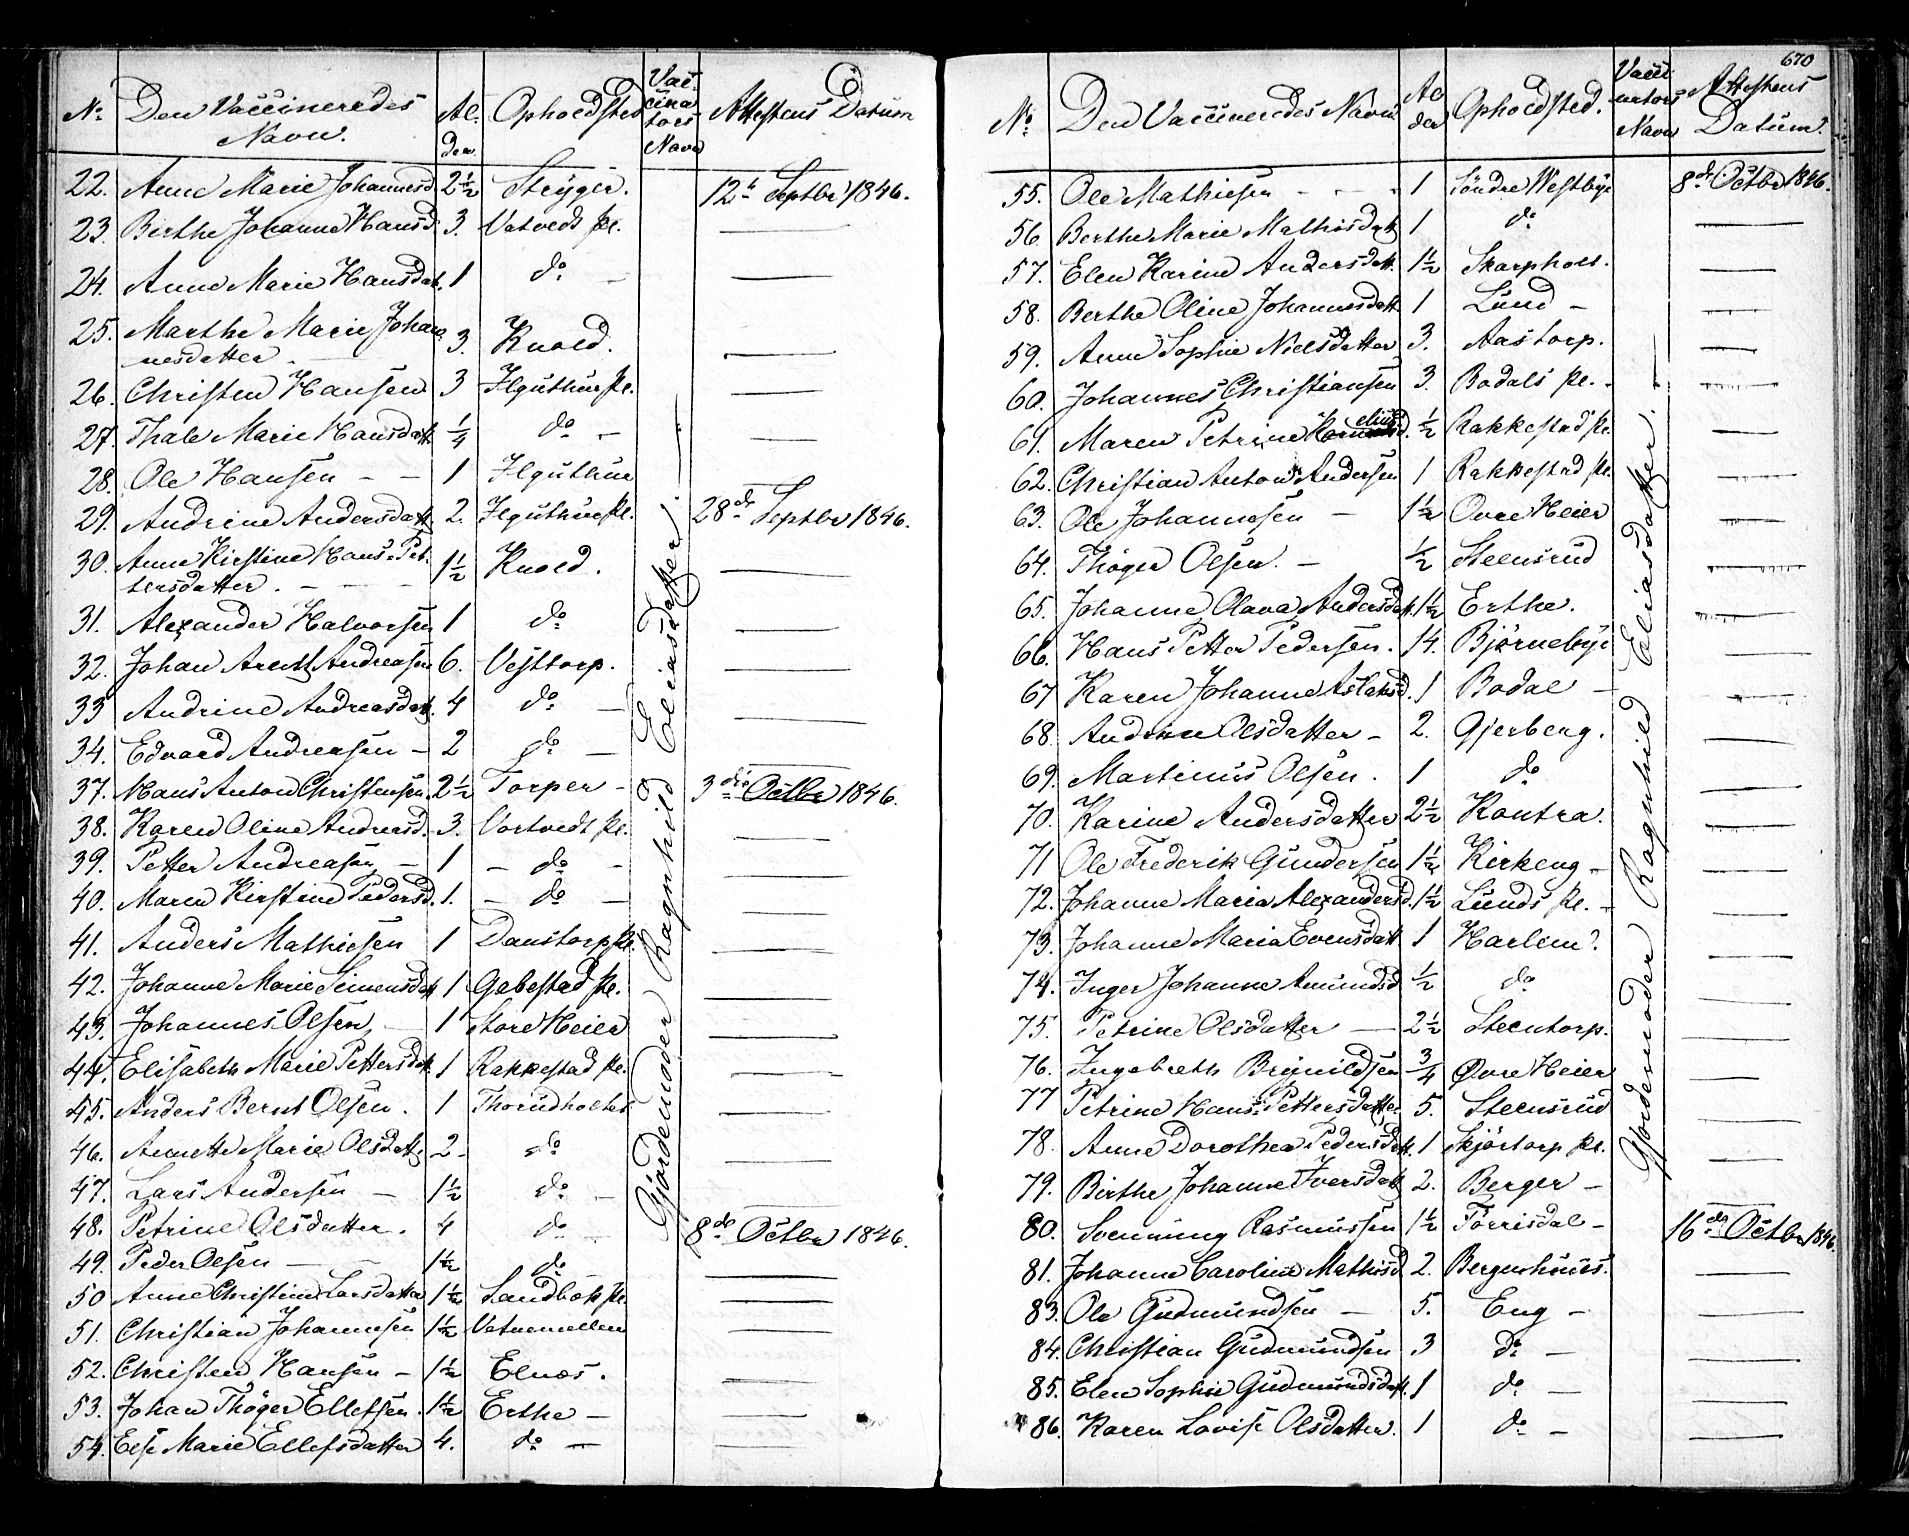 No. Den Vaccineredes Navn. Al- der Opholdsted Vac- cina tors Navn Attestens Datum
22. Anne Marie Johannesd. 2½ Stryger. 12te Septbr 1846.
23. Birthe Johanne Hansd. 3. Vatvedt Pl. —
24. Anne Marie Hansdat. 1 do —
25. Marthe Marie Johan
nesdatter. 3. Knold. —
26. Christen Hansen 3 Pl. —
27. Thale Marie Hansdatt ¼ do —
28. Ole Hansen — 1 —
29. Andrine Andersdatt 2. Pl. 28de Septbr 1846.
30. Anne Kirstine Hans Pet-
tersdatter. — 1½ Knold. —
31. Alexander Halvorsen 1 do —
32. Johan Arent Andreasen 6. Vesttorp. —
33 Andrine Andreasdatt. 4 do —
34. Edvard Andreasen — 2 do —
37. Hans Anton Christensen. 2½ Torper — 3die Octbr 1846.
38. Karen Oline Andreasd. 3. Vortvedt Pl. —
39. Petter Andreasen — 1 — do —
40. Maren Kirstine Pedersd. 1. — do —
41. Anders Mathiesen 1 Danstorp Pl. —
42. Johanne Marie Simensdatt 1 Gabestad Pl. —
43. Johannes Olsen, — 1 Store Heier —
44. Elisabeth Marie Pettersdatt. 1 Rakkestad Pl. —
45. Anders Bernt Olsen. 1 Thorudholtet —
46. Annette Marie Olsdatt. 2 do —
47. Lars Andersen — 1½ do —
48. Petrine Olsdatter. 4 do — 8de Octbr 1846.
49. Peder Olsen — 1½ do —
50 Anne Christine Larsdatter 1½ Sandbæk Pl. —
51. Christian Johannesen 1½ —
52. Christen Hansen — 1½ Elnæs. —
53. Johan Thøger Ellefsen. 1½ Erthe — —
54. Else Marie Ellefsdatter 4. do — —
Gjordemoder Ragnhild Eliasdatter. —
670
No. Den Vaccineredes Navn Al der Opholdsted. Vacci nators Navn Attestens Datum.
55. Ole Mathiesen — 1 Søndre Westbye 8de Octbr 1846.
56. Berthe Marie Mathisdatt 1 do —
57. Elen Karine Andersdatt. 1½ Skarpholt. —
58. Berthe Oline Johannesdatt 1 Lund — —
59. Anne Sophie Nielsdatter 3. Aastorp. —
60. Johannes Christiansen 3. Bodals Pl. —
61. Maren Petrine ½ Rakkestad Pl. —
62. Christian Anton Andersen 1 Rakkestad Pl. —
63. Ole Johannesen — 1½ Ovre Heier —
64. Thøger Olsen. — ½ Steensrud —
65. Johanne Olava Andersdatt. 1½ Erthe. —
66. Hans Petter Pedersen. 14. Bjørnebye —
67 Karen Johanne Aslaksd. 1 Bodal — —
68. Andrine Olsdatter — 2. Gjerberg. —
69. Martinus Olsen. 1 do —
70. Karine Andersdatter 2½ Kontra. —
71 Ole Frederik Gundersen 1½ Kirkeng — —
72. Johanne Maria Alexandersd. 1½ Lunds Pl. — —
73. Johanne Maria Evensdatt 1 Harlem. —
74. Inger Johanne Amundsd ½ do —
75. Petrine Olsdatter — 2½ Steentorp. —
76. Ingebreth Brynildsen ¾ Øvre Heier —
77 Petrine Hans Pettersdatter 5. Steensrud —
78. Anne Dorothea Pedersdatt. 1 Skjørtorp Pl. —
79. Birthe Johanne Iversdatt 2. Berger — —
80. Svenning Rasmussen 1½ Torrisdal — 16de Octbr 1846.
81. Johanne Caroline Mathisd 2. Bergerhuus. —
83. Ole Gudmundsen — 5. Eng — —
84. Christian Gudmundsen 3 do — —
85. Elen Sophie Gudmundsdatt. 1 do — —
86. Karen Lovise Olsdatter. 1 do — —
Gjordemoder Ragnhild Eliasdatter. —